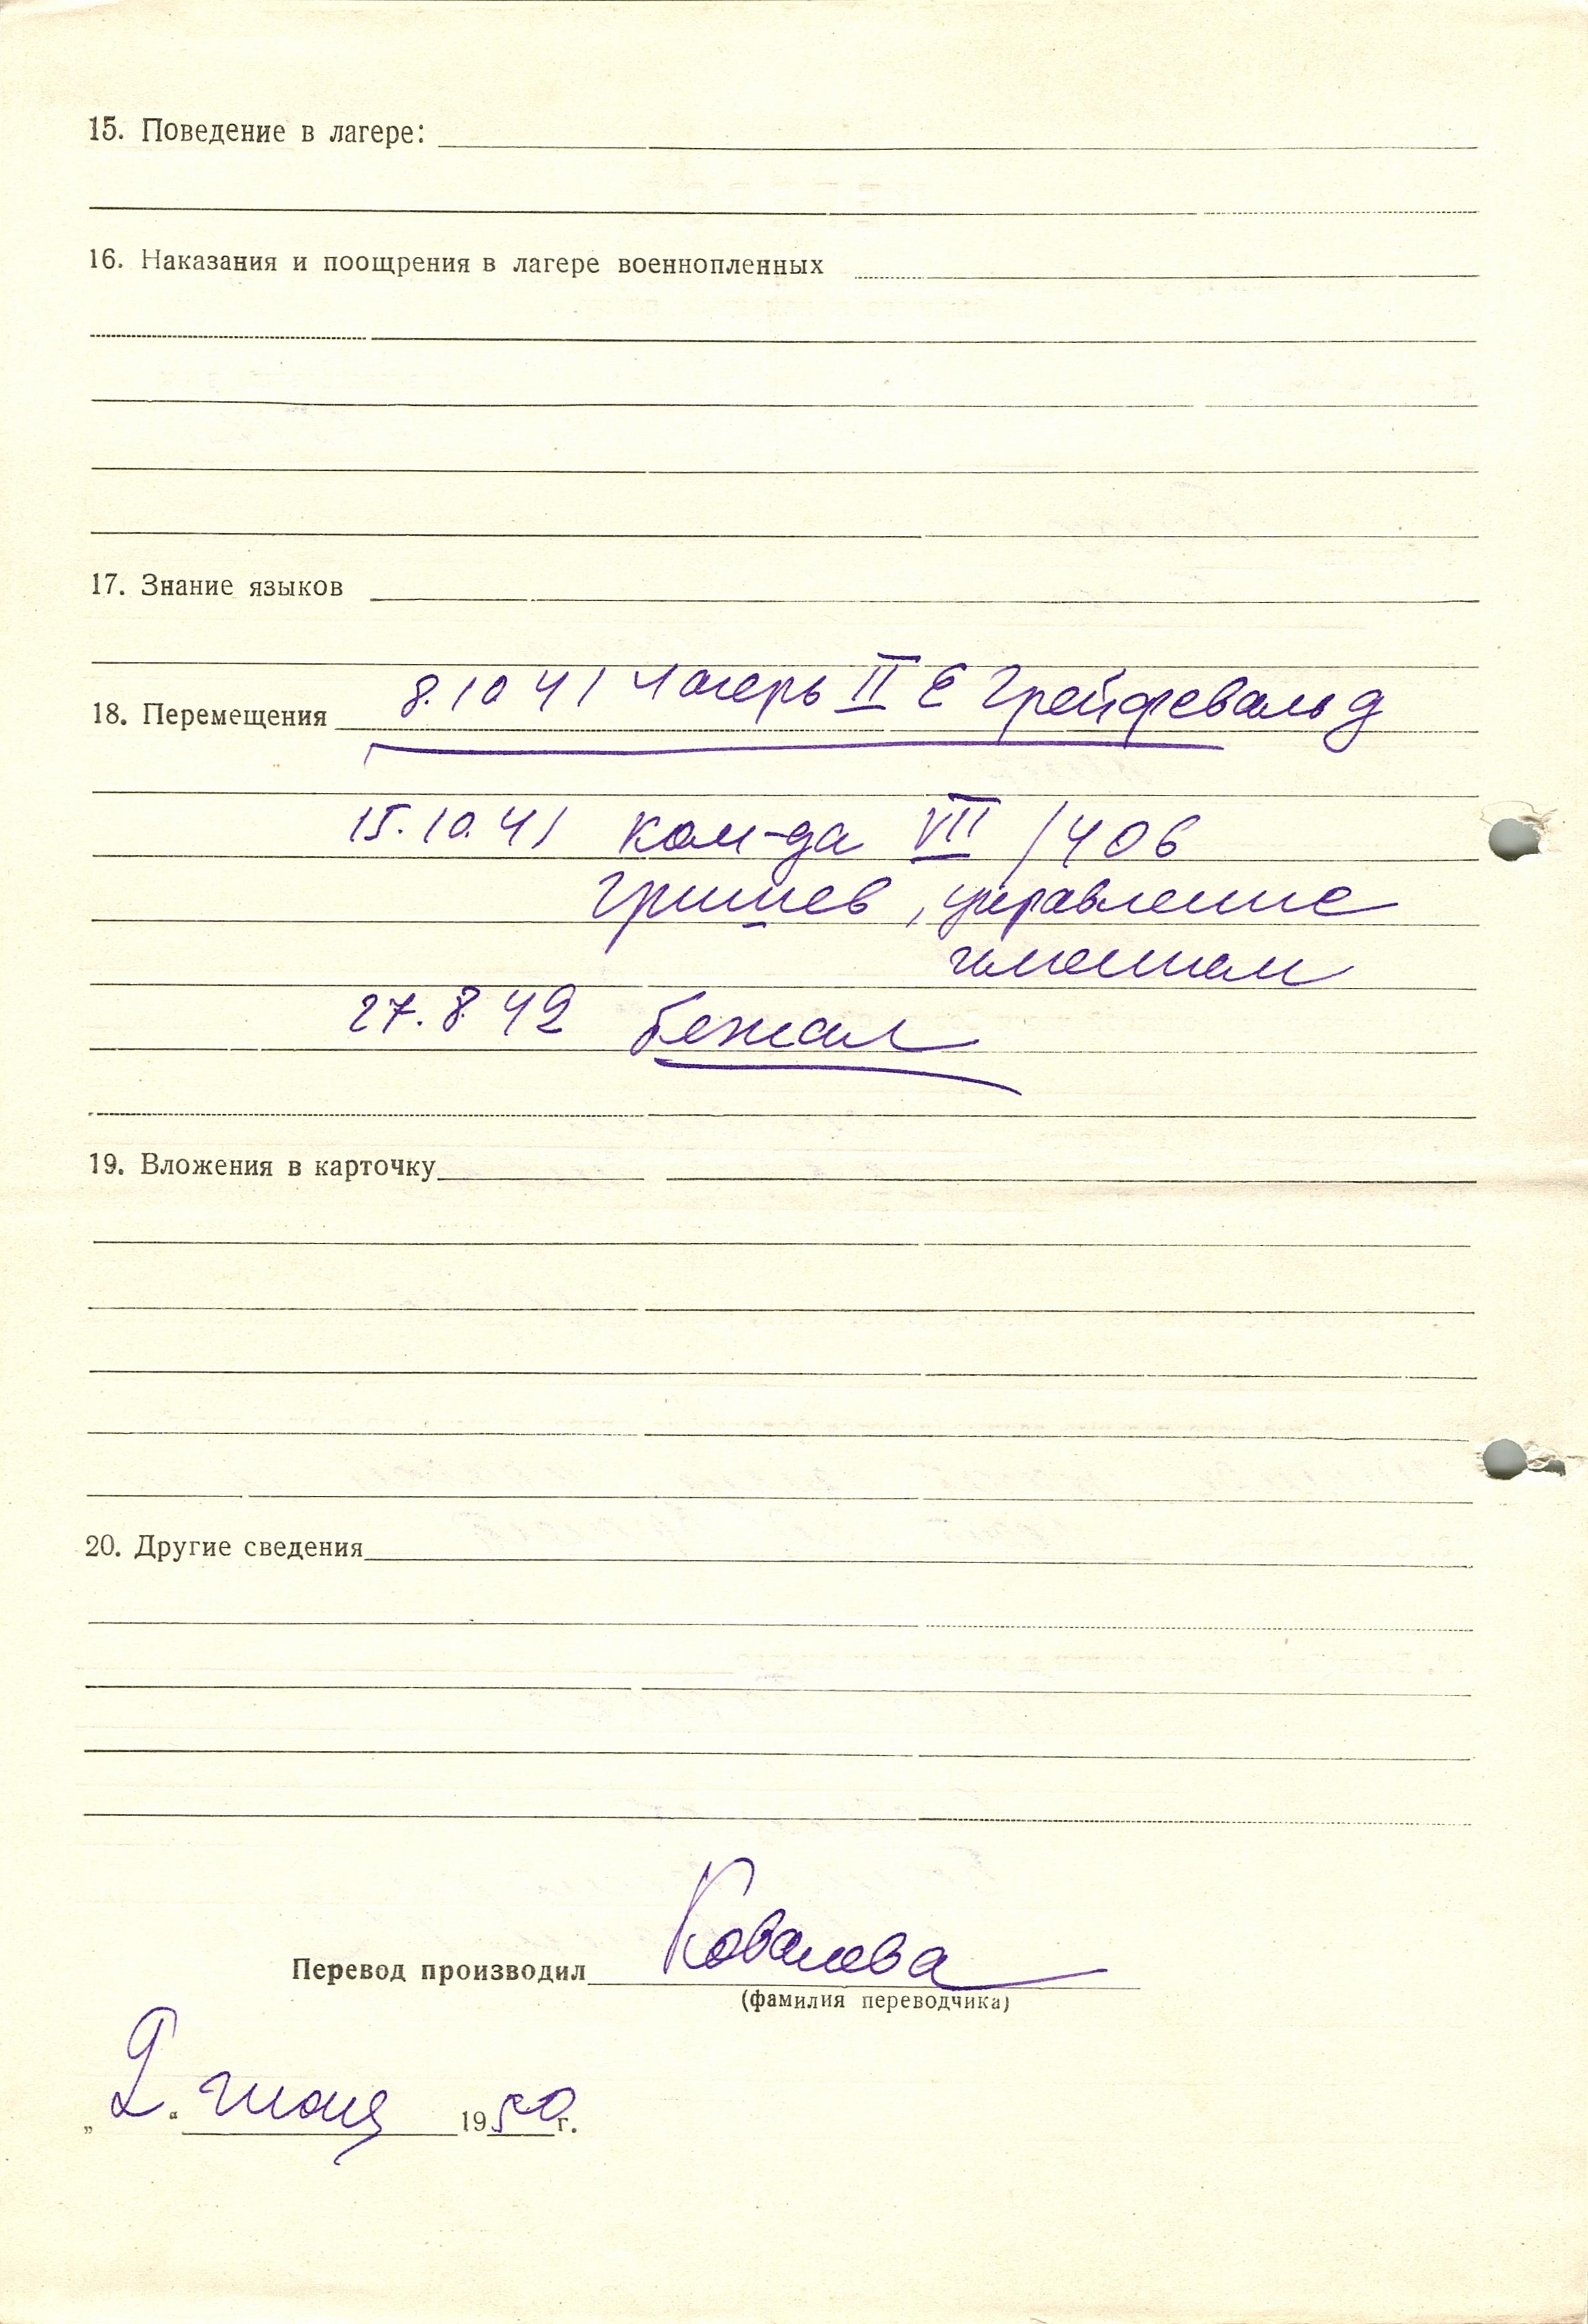 15. Поведение в лагере:
16. Наказания и поощрения в лагере военнопленных
17. Знание языков
18. Перемещения 8.10 41 лагерь II Е Грейфевальд
15.10.41 ком-да VII /406
Гришев, управление
имением
27.8.42 бежал
19. Вложения в карточку
20. Другие сведения
Перевод производил Ковалева
(фамилия переводчика)
„2.“ июня 1950 г.